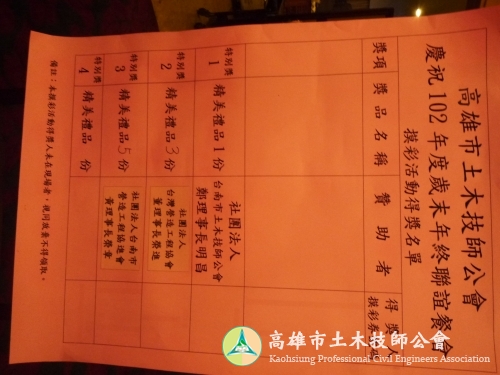 高雄市土木技師公會
慶祝102年度歲末年終聯誼餐會
摸彩活動得獎名單
獎項 獎品名稱 贊助者 得獎人
特別獎1 精美禮品1份 社團法人
台南市土木技師公會
鄭理事長明昌
特別獎2 精美禮品3份 社團法人
台灣營造工程協會
董理事長榮進
特別獎3 精美禮品5份 社團法人台南市
營造工程協進會
黃理事長榮章
特別獎4 精美禮品 份
備註：本摸彩活動得獎人未在現場者，視同放棄不得領取。
高雄市土木技師公會
Kaohsiung Professional Civil Engineers Association